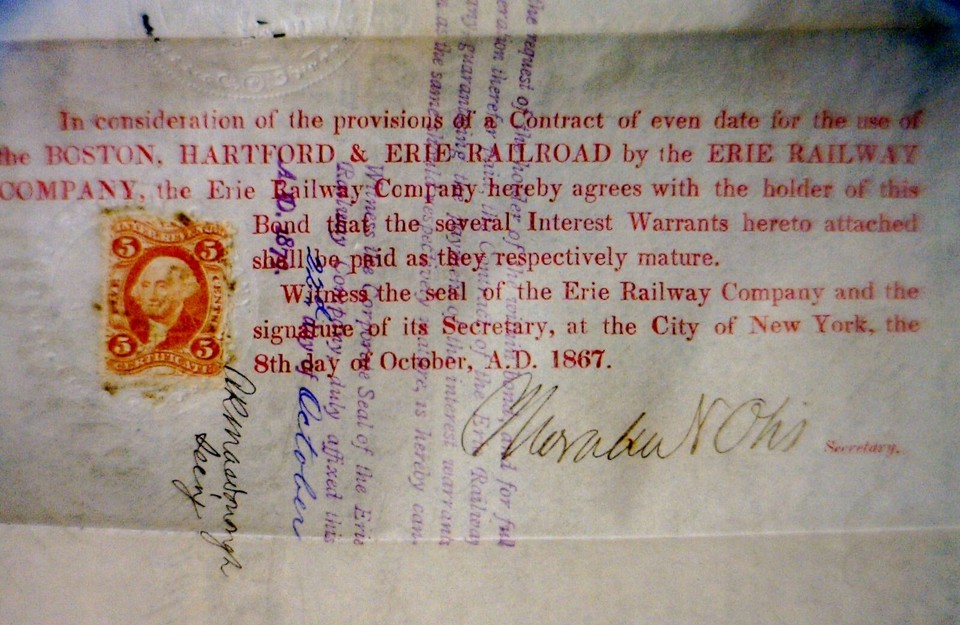 In consideration of the provisions of a Contract of even date for the use of
the BOSTON, HARTFORD & ERIE RAILROAD by the ERIE RAILWAY
COMPANY, the Erie Railway Company hereby agrees with the holder of this
Bond that the several Interest Warrants hereto attached
shall be paid as they respectively mature.
Witness the seal of the Erie Railway Company and the
signature of its Secretary, at the City of New York, the
8th day of October, A.D. 1867.
Horatio N Otis
Secretary.
5 5
CENTS
5 5
CERTIFICATE
the request of the holder of the within bond, and for full
therefor paid, the of the Erie Railway
guarantying the payment of the interest warrants
as the same respectively mature, is hereby can-
Witness the Corporate Seal of the Erie
Railway Company, duly affixed this
22d day of October
A.D. 187